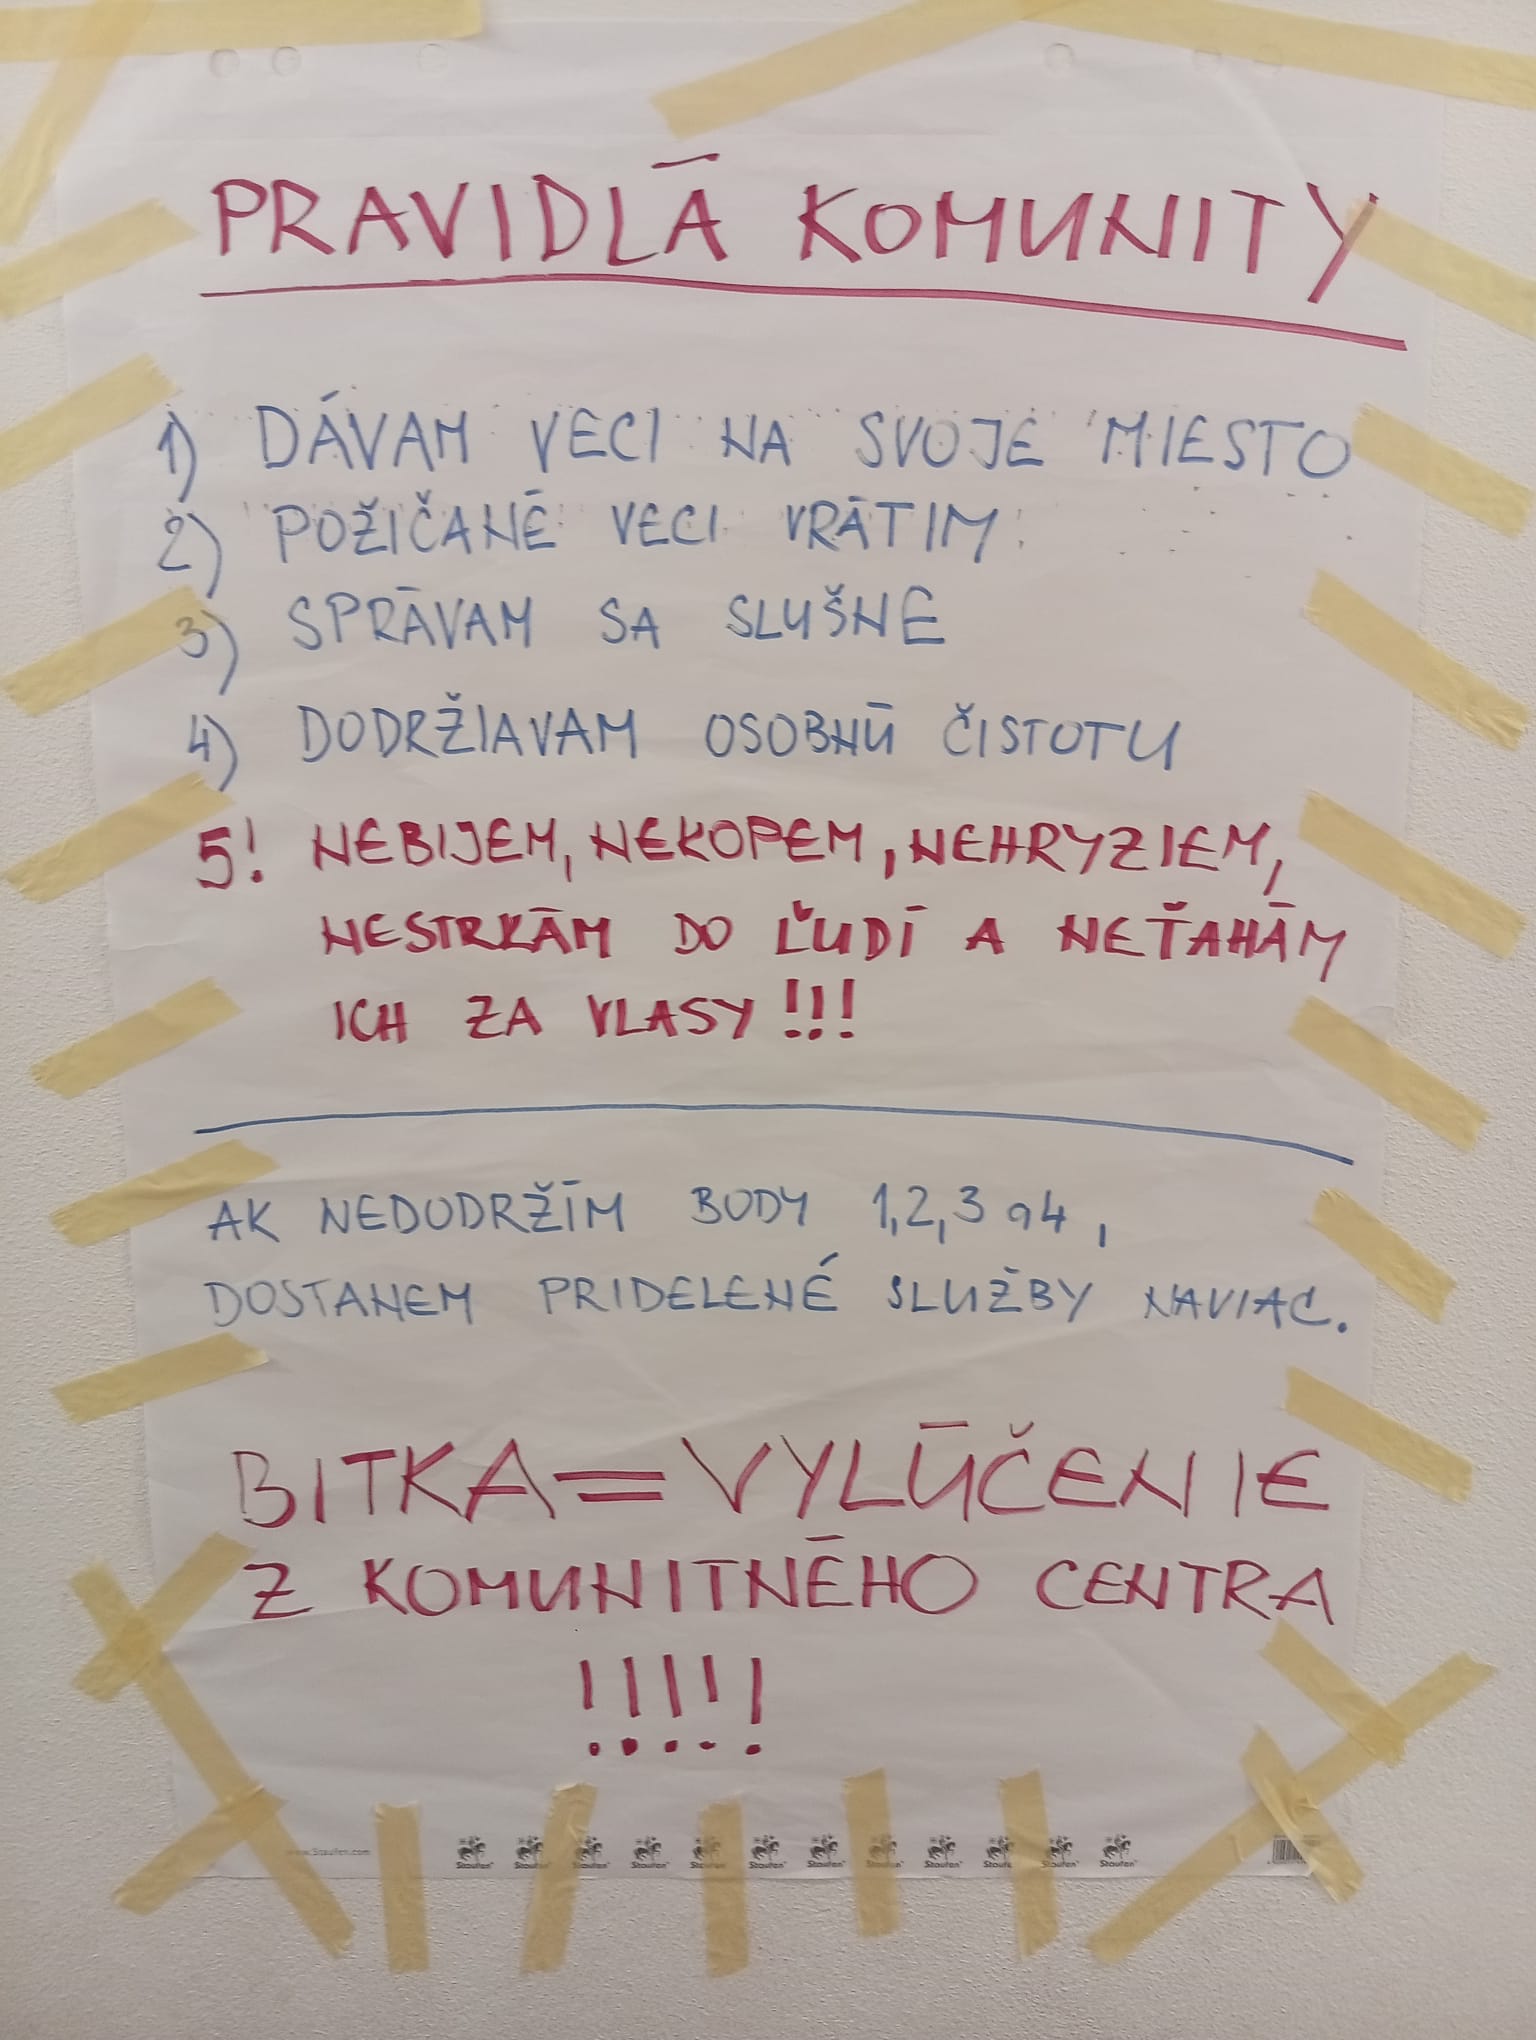 PRAVIDLÁ KOMUNITY
1) DÁVAM VECI NA SVOJE MIESTO
2) POŽIČANÉ VECI VRÁTIM
3) SPRÁVAM SA SLUŠNE
4) DODRŽIAVAM OSOBNÚ ČISTOTU
5! NEBIJEM, NEKOPEM, NEHRYZIEM,
NESTRKÁM DO ĽUDÍ A NEŤAHÁM
ICH ZA VLASY!!!
AK NEDODRŽÍM BODY 1,2,3 a 4,
DOSTANEM PRIDELENÉ SLUŽBY NAVIAC.
BITKA = VYLÚČENIE
Z KOMUNITNÉHO CENTRA
!!!!!
www.Staufen.com Staufen Staufen Staufen Staufen Staufen Staufen Staufen Staufen Staufen Staufen Staufen Staufen